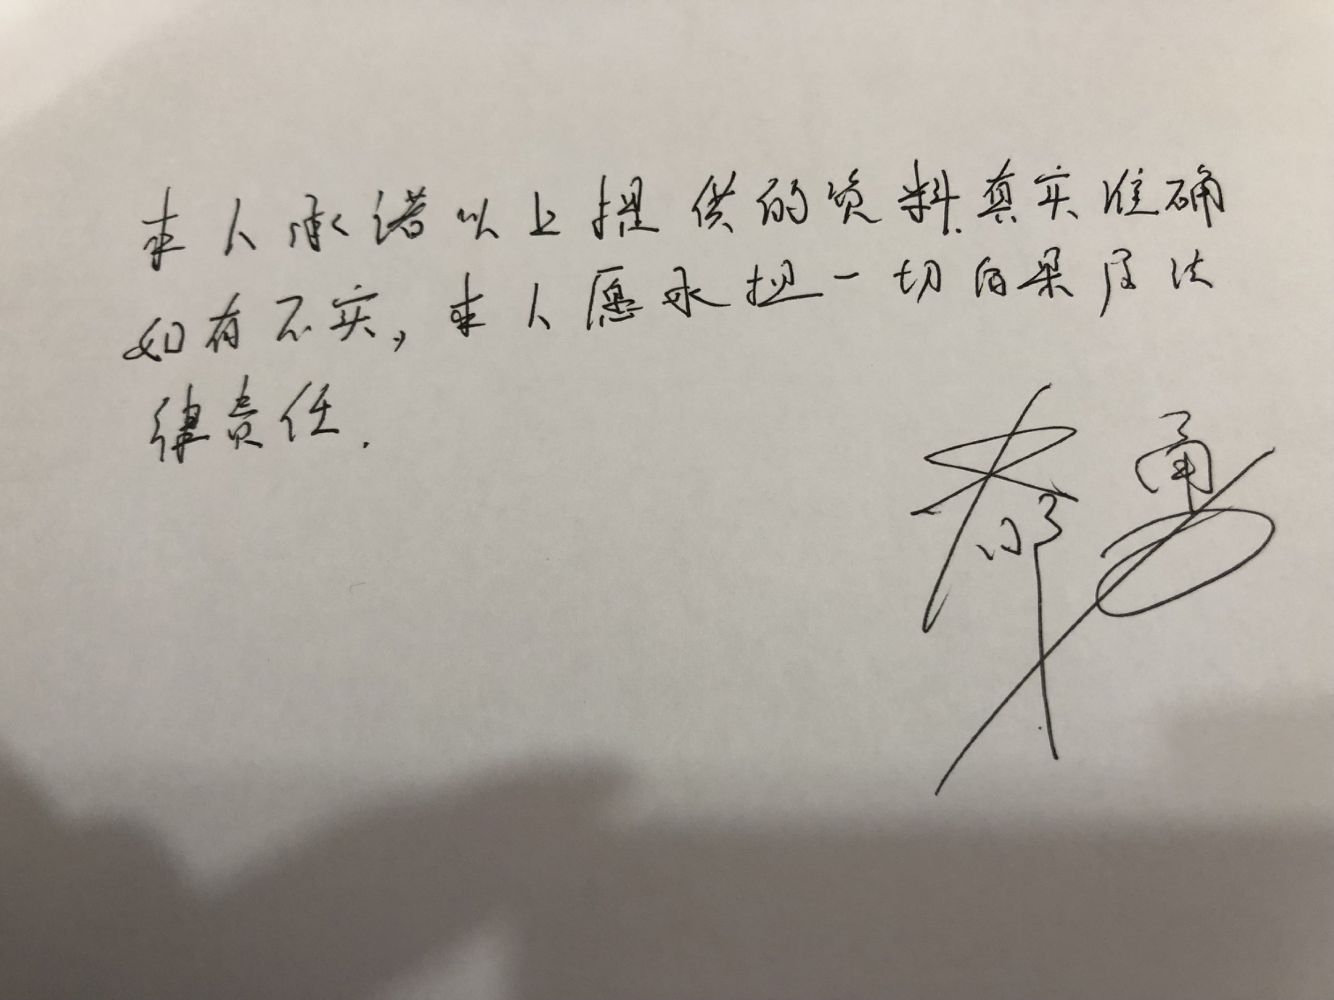 本人承诺以上提供的资料真实准确
如有不实，本人愿承担一切后果及法
律责任.